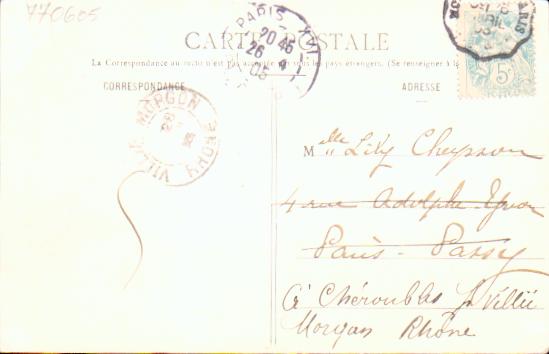 770605
PARIS XVI
20 45
26 4
05
CARTE POSTALE
La Correspondance au recto n'est pas acceptée par tous les pays étrangers. (Se renseigner à la
CORRESPONDANCE
ADRESSE
5c
VILLIÉ MORGON
RHONE
28
Mlle Lily Cheysson
4 rue Adolphe Yvon
Paris - Passy
à Chéroubles p. Villié
Morgon Rhône